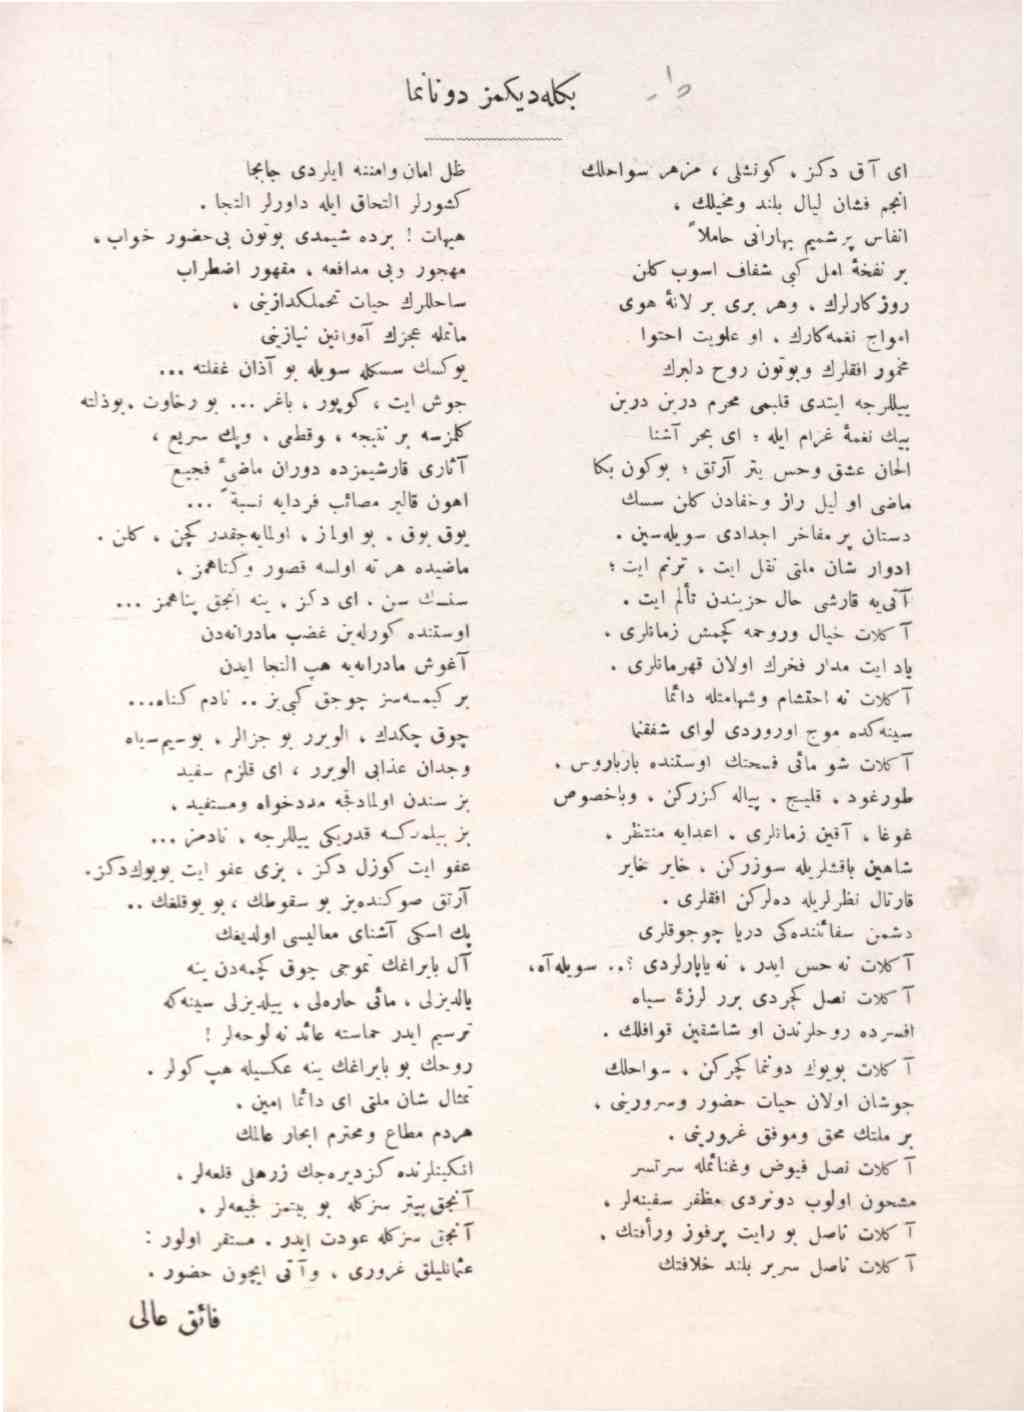 بكله‌دیكمز دوناnما
ای آق دكز ، كونشلی ، مزهر سواحلك
انجم فشان لیال بلند ومخیلك ،
انفاس پرشمیم بهارانی حاملاً
بر نفخهٔ امل كبی شفاف اسوب كلن
روزكارلرك ، وهر بری بر لانهٔ هوی
امواج نغمه‌كارك ، او علویت احتوا
مخمور افقلرك وبوتون روح دلبرك
ییللرجه ایتدی قلبمی محرم درین درین
بیك نغمهٔ غرام ایله ؛ ای بحر آشنا
الحان عشق وحس یتر آرتق ؛ بوكون بكا
ماضی او لیل راز وخفادن كلن سسك
دستان پر مفاخر اجدادی سویله‌سین .
ادوار شان ملتی نقل ایت ، ترنم ایت ؛
آتی‌یه قارشی حال حزیندن تألم ایت .
آكلات خیال وروحمه كچمش زمانلری ،
یاد ایت مدار فخرك اولان قهرمانلری .
آكلات نه احتشام وشهامتله دائما
سینه‌كده موج اوروردی لوای شفقنما
آكلات شو مائی فسحتك اوستنده بارباروس ،
طورغود ، قلیج ، پیاله كزركن ، وباخصوص
غوغا ، آقین زمانلری ، اعدایه منتظر ،
شاهین باقشلریله سوزركن ، خایر خایر
قارتال نظرلریله ده‌لركن افقلری .
دشمن سفائننده‌كی دریا چوجوقلری
آكلات نه حس ایدر ، نه یاپارلردی ؟.. سویله آه،
آكلات نصل كچردی برر لرزهٔ سیاه
افسرده روحلرندن او شاشقین قوافلك .
آكلات بویوك دونما كچركن ، سواحلك
جوشان اولان حیات حضور وسرورینی ،
بر ملتك محق وموفق غرورینی .
آكلات نصل فیوض وغنائمله سرتسر
مشحون اولوب دونردی مظفر سفینه‌لر ،
آكلات ناصل بو رایت پرفوز ورأفتك ،
آكلات ناصل سریر بلند خلافتك
ظل امان وامننه ایلردی جابجا
كشورلر التحاق ایله داورلر التجا .
هیهات ! بزده شیمدی بوتون بی‌حضور خواب ،
مهجور وبی مدافعه ، مقهور اضطراب
ساحللرك حیات تحملكدازینی ،
ماتمله عجزك آه‌وانین نیازینی
یوكسك سسكله سویله بو آذان غفلته ...
جوش ایت ، كوپور ، باغر ... بو رخاوت ، بوذلته
كلمزسه بر نتیجه ، وقطعی ، وپك سریع ،
آثاری قارشیمزده دوران ماضیٔ فجیع
اهون قالیر مصائب فردایه نسبةً ...
یوق یوق ، بو اولماز ، اولمایه‌جقدر كچن ، كلن .
ماضیده هر نه اولسه قصور وكناهمز ،
سنسك سن ، ای دكز ، ینه انجق پناهمز ...
اوستنده كورله‌ین غضب مادرانه‌دن
آغوش مادرانه‌یه هپ التجا ایدن
بر كیمسه‌سز چوجق كبی‌یز .. نادم كناه...
چوق چكدك ، الویرر بو جزالر ، بوسیم‌سیاه
وجدان عذابی الویرر ، ای قلزم سفید
بز سندن اولمادقجه مددخواه ومستفید ،
بز بیلمه‌دكسه قدریكی ییللرجه ، نادمز ...
عفو ایت كوزل دكز ، بزی عفو ایت بویوك‌دكز.
آرتق صوكنده‌یز بو سقوطك ، بو یوقلغك ..
پك اسكی آشنای معالیسی اولدیغك
آل بایراغك تموجی چوق كچمه‌دن ینه
یالدیزلی ، مائی حاره‌لی ، ییلدیزلی سینه‌كه
ترسیم ایدر حماسته عائد نه لوحه‌لر !
روحك بو بایراغك ینه عكسیله هپ كولر .
تمثال شان ملتی ای دائما امین ،
هردم مطاع ومحترم ابحار عالمك
انكینلرنده كزدیره‌جك زرهلی قلعه‌لر ،
آنجق بیتر سزكله بو بیتمز فجیعه‌لر ،
آنجق سزكله عودت ایدر ، مستقر اولور :
عثمانلیلق غروری ، وآتی ایچون حضور .
فائق عالی